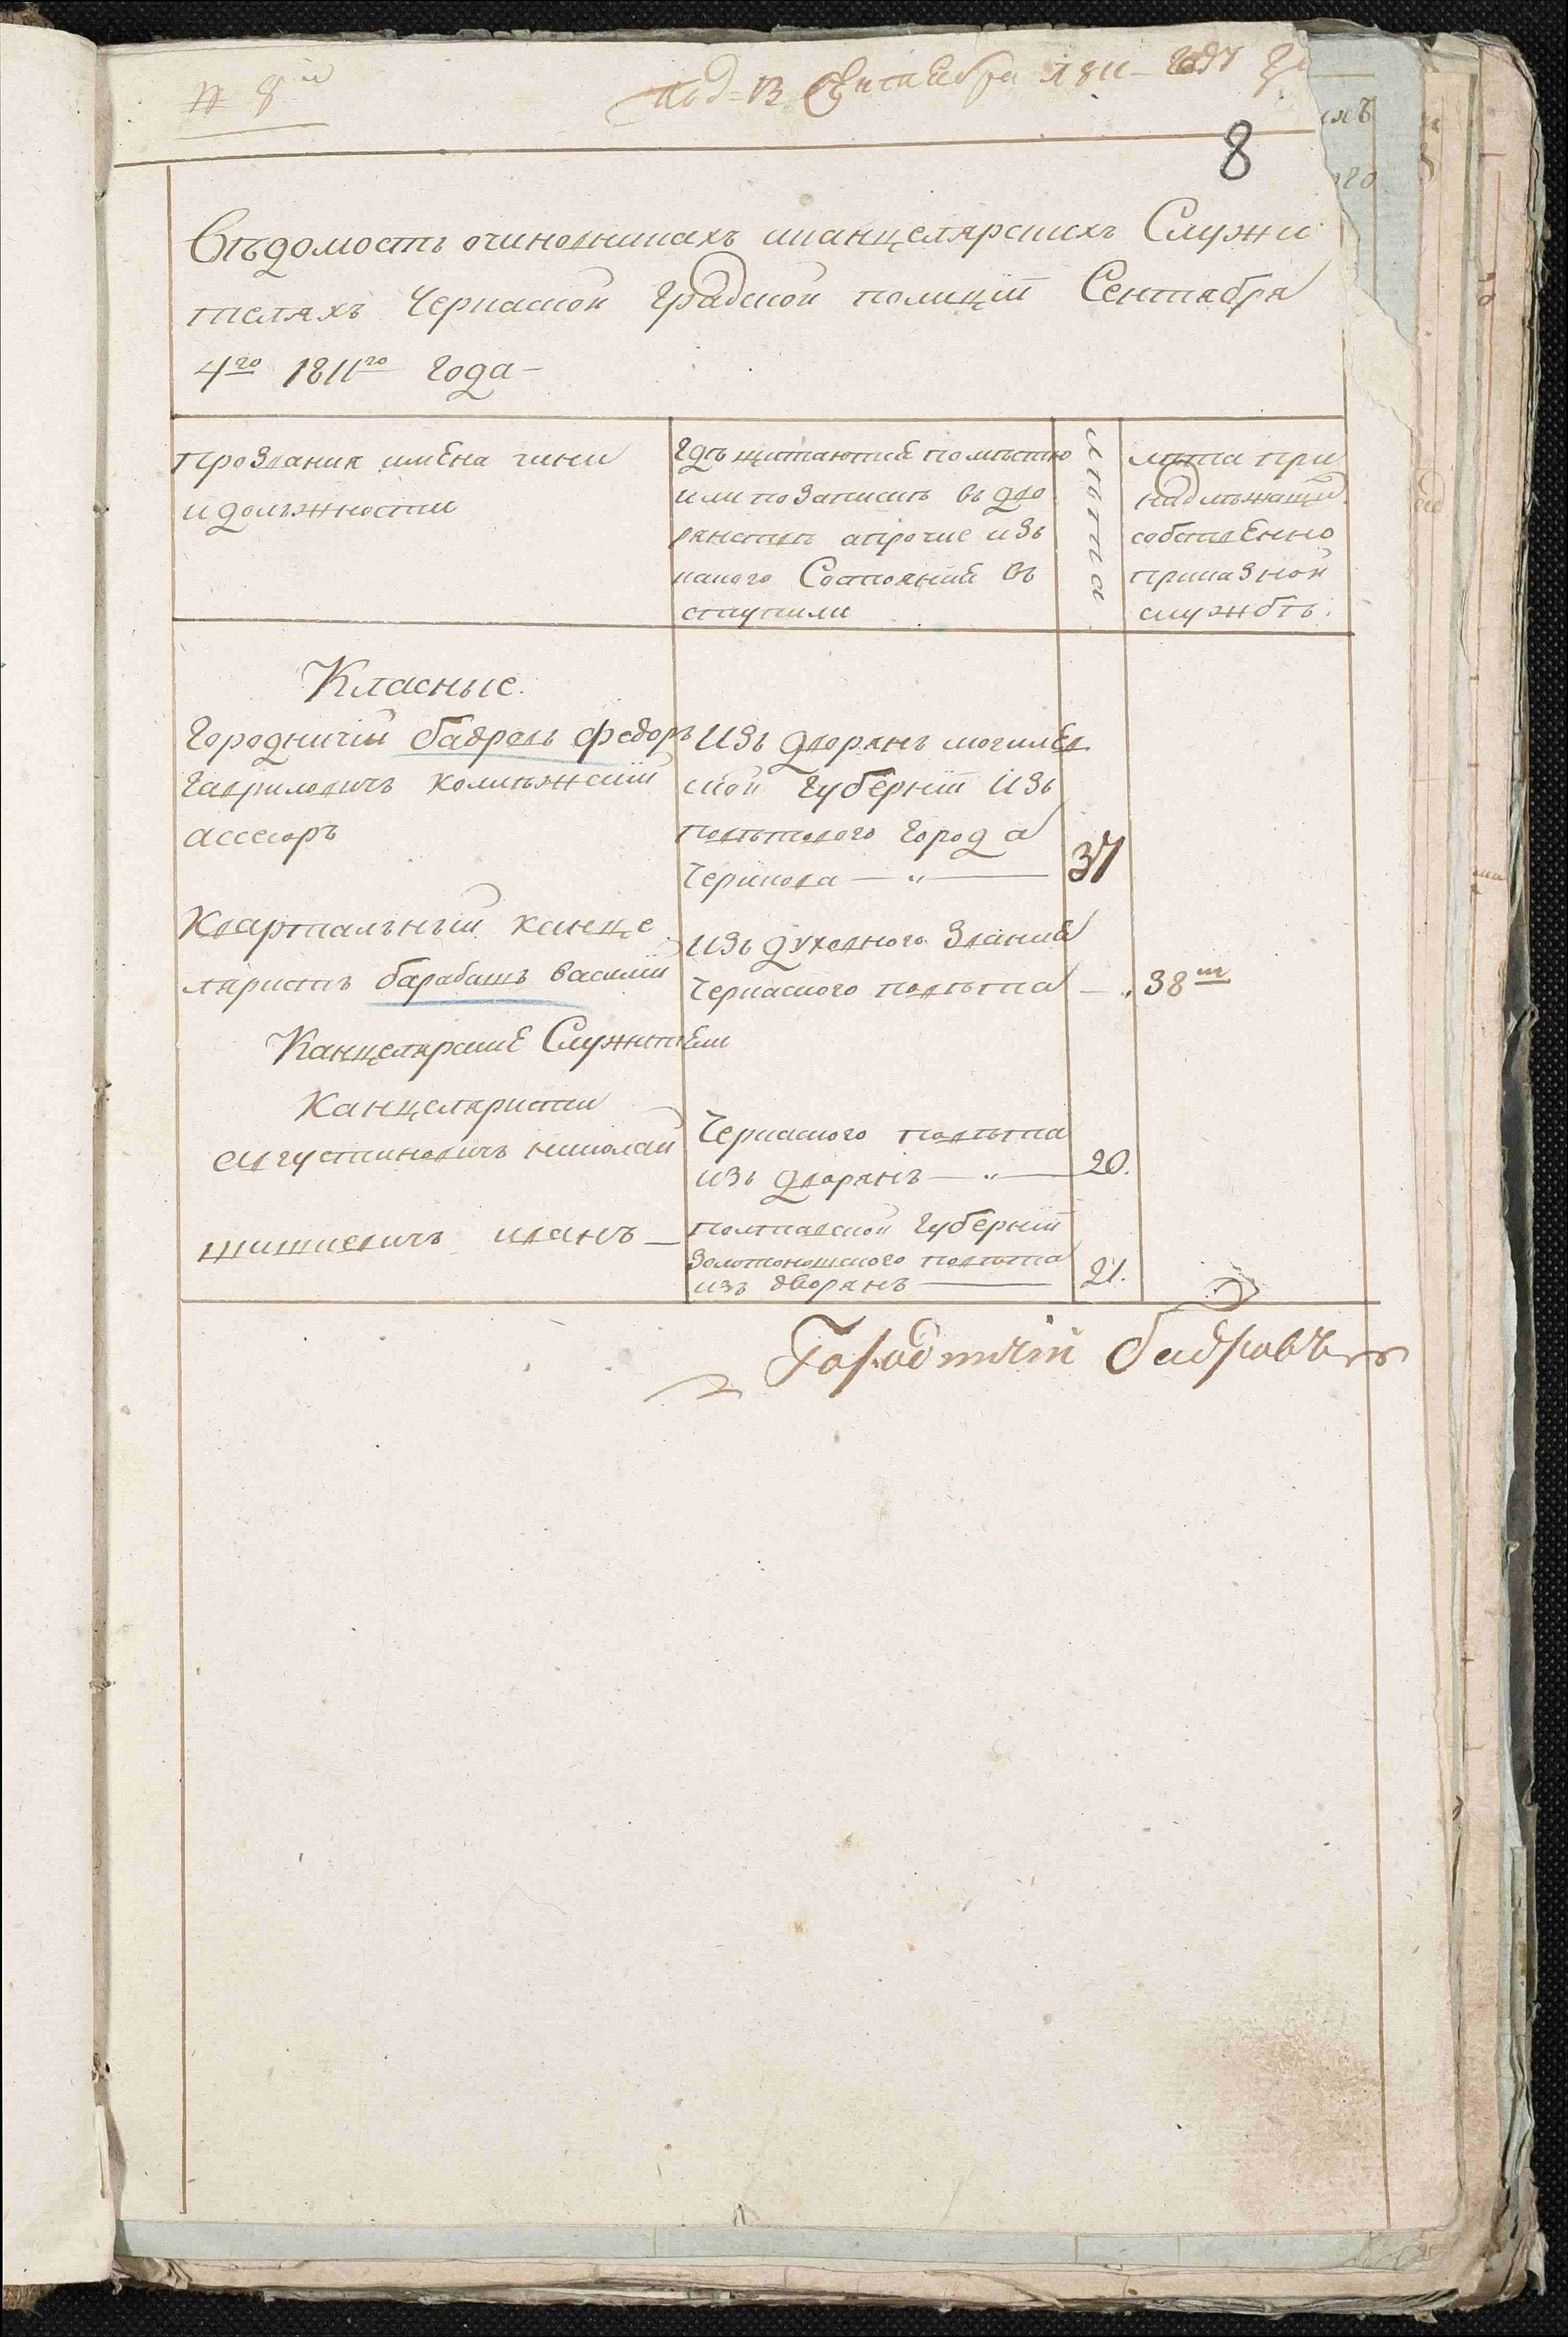 № 8й
Под: В Сентября 1811 Году
8
Вѣдомость очиновникахъ иканцелярскихъ Служи
теляхъ Черкаской Градской полиціи Сентября
4го 1811го Года —
Прозвания имѣна чини
и должности
Гдѣ щитаются помѣстю
или позапискѣ въ дво
рянствѣ апрочие изъ
какого Состояния въ
ступили
лѣта
лѣта при
надлѣжащи
собственно
приказной
службѣ.
Класные.
Городничий бавровъ федоръ
Гавриловичъ колѣжский
ассесоръ
Изъ дворянъ могилев
ской Губерніи Изъ
повѣтового города
Черикова — „ —
37
Квартальный канце
ляристъ барабашъ василий
изъ духовного звания
Черкаского повѣта —
38ш
Канцелярские Служители
Канцеляристи
Августиновичъ николай
Черкаского повѣта
изъ дворянъ — „ —
20.
шишкевичъ иванъ —
полтавской Губерніи
Золотоношского повѣта
изъ дворянъ —
21.
Городничій Бавровъ